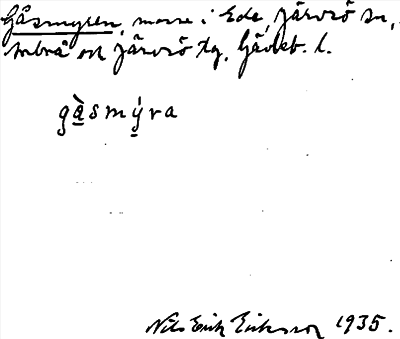 Gåsmyren, mosse i Ede, Järvsö sn,
Arbrå och Järvsö tg, Gävleb. l.
gå̀smýra
Nils Erik Eriksson 1935.